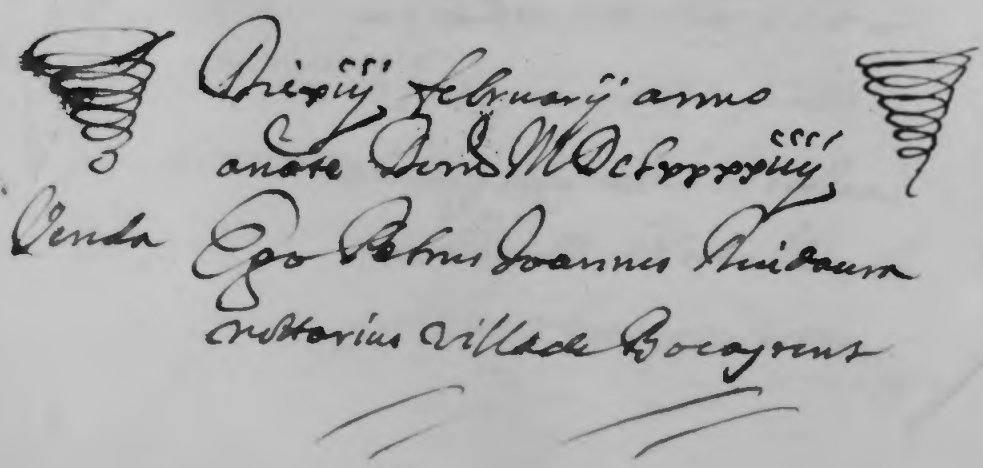 Die xiij februarij anno
anate Domi MDclxxxxiiij
Venda
Ego Petrus Joannes Riudaura
nottarius villa de Bocayrent